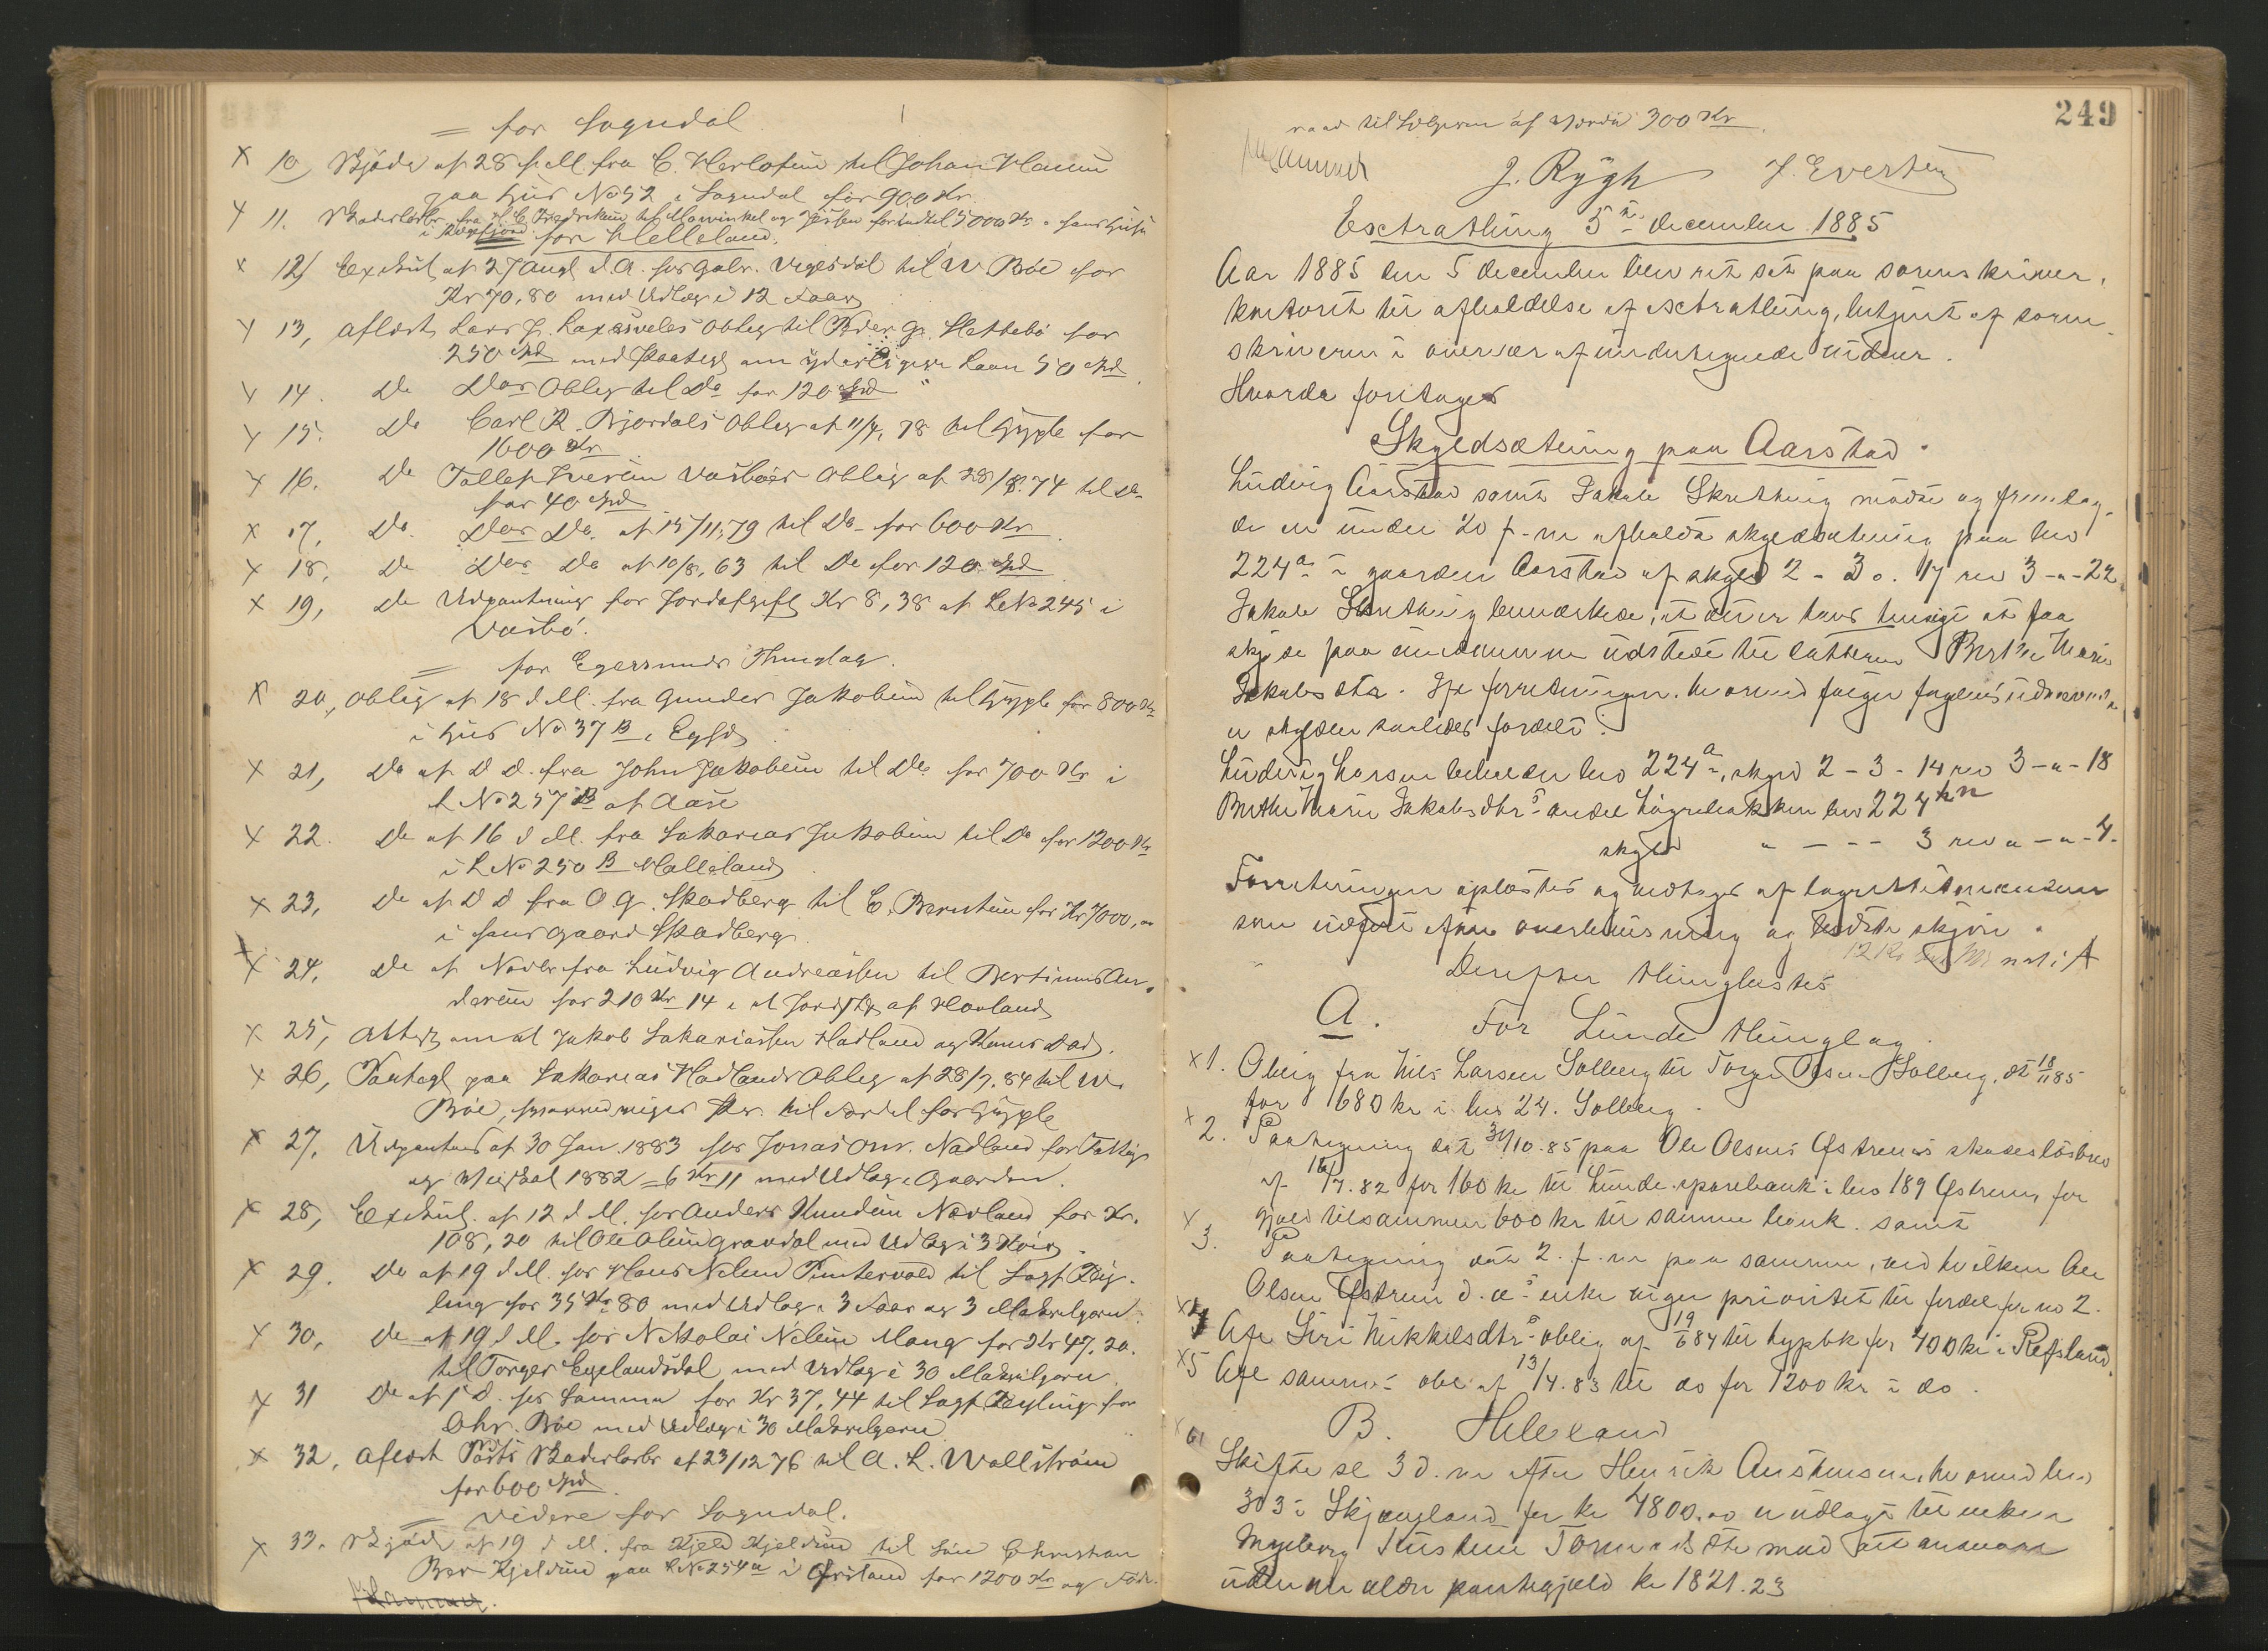 = for Sogndal
x 10, Skjöde af 28 f. M. fra C. Herlofsen til Johan Hansen
paa Huus No 52 i Sogndal for 900 Kr.
x 11. Skadeslösbr. fra H. C. Fredriksen til Mowinkel og indtil 5000 Kr i hans Huse
i for Helleland.
x 12, Execut. af 27 Augt d. A. hos Gabr. Vegesdal til W. Böe for
Kr 70,80 med Udlæg i 12 Faar
x 13, Aflæst Lars J. Laxesveles Oblig til Peder G. Hettebö for
250 Spd med Paategn om yderligere Laan 50 Spd
x 14. Do Dos Oblig til Do for 120 Spd
x 15. Do Carl R. Bjordals Oblig af 11/4, 78 til Hypbk for
1600 Kr
x 16. Do Tollef Iversen Vasbös Oblig af 28/8. 74 til Do
for 40 Spd
x 17. Do. Dos Do. af 15/11,79 til Do for 600 Kr
x 18, Do Dos Do af 10/8, 63 til Do for 120 Spd
x 19, Do Udpantning for Jordafgift Kr 8,38 af LNo 245 i
Vasbö.
= for Egersunds Thinglag.
x 20, Oblig af 18 d. M. fra Gunder Jakobsen til Hypbk for 800 Kr
i Huus No 37 B i Egsd
x 21, Do af D. D. fra John Jakobsen til Do for 700 Kr i
L No 257 B af Aase
x 22. Do af 16 d. M. fra Sakarias Jakobsen til Do for 1200 Kr
i L No 250 B Halleland
x 23, Do af D D fra O. G. Skadberg til C. Berentsen for Kr 7000,00
i hans Gaard Skadberg
x 24. Do af Novbr fra Ludvig Andreassen til Bertinus An-
dersen for 210 Kr 14 i et Jordstk af Hovland
x 25, Attest om at Jakob Sakariassen Hadland og Kones Død.
x 26, Paategn paa Sakarias Hadlands Oblig af 28/7. 84 til W.
Böe, hvorved viges Pr. til Fordel for Hypbk
x 27, Udpantning af 30 Jan. 1883 hos Jonas Nadland for
og 1882 = 6 Kr 11 med Udlæg i Gaarden.
x 28, Execut. af 12 d. M. hos Anders Knudsen Nevland for Kr.
108,20 til Ole Olsen Gravdal med Udlæg i 3 Köer
x 29. Do af 19 d. M. hos Hans Nilsen til Sagf. Rey-
ling for 35 Kr 80 med Udlæg i 3 Faar og 3 Makrelgarn
x 30, Do af 19 d. M. hos Nikolai Nilsen Mong for Kr 47,20.
til Torger Eigelandsdal med Udlæg i 30 Makrelgarn
x 31 Do af s. D. hos Samme for Kr 37,44 til Sagf. Reyling for
Chr. Böe med Udlæg i 30 Makrelgarn
x 32, Aflæst Skadeslösbr af 23/12 76 til A. L. Wallström
for 600 Spd
= videre for Sogndal.
x 33. Skjöde af 19 d. M. fra Kjeld Kjeldsen til Sön Christian
Ber. Kjeldsen paa LNo 254 a i for 1200 Kr og Föde-
249
raad til Sælgeren af Værdi 300 Kr.
J. Rygh J. Evertsen
Extrathing 5te december 1885
Aar 1885 den 5 december blev ret sat paa sorenskriver-
kontoret til afholdelse af extrathing, betjent af soren-
skriveren i overvær af undertegnede vidner.
Hvorda foretoges
Skyldsætning paa Aarstad.
Ludvig Aarstad samt Jakob Skretting mödte og fremlag-
de en under 20 f. m. afholdt skyldsætning paa lno
224a i gaarden Aarstad af skyld 2 - 3 o. 17 rev 3 - " - 22.
Jakob Skretting bemærkede, at det er hans hensigt at faa
skjöde paa eiendommen udstedt til datteren Berthe Marie
Jakobsdtr. Ifg forretningen, hvormed fulgte fogdens udnævnelse,
er skylden saaledes fordelt:
Ludvig Larsen beholder lno 224a, skyld 2 - 3 - 14 rev 3 - " - 18
Berthe Marie Jakobsdtrs andel lno 224
skyld " - - - 3 rev " - " - 4.
Forretningen oplæstes og vedtoges af lagrettet
som udfört efter overbevisning og bedste skjön.
Derefter thinglæstes
A. For Lunde thinglag.
x 1. Oblig fra Nils Larsen Solberg til Torger Olsen Solberg, dt 18/11 85
for 680 kr i lno 24. Solberg.
x 2. Paategning dat 31/10. 85 paa Ole Olsens Ystrems skadeslösbrev
af 16/7. 82 for 160 kr til Lunde sparebank i lno 189 Ystrem for
gjæld tilsammen 600 kr til samme bank. samt
x 3. Paategning dat 2. f. m paa samme, ved hvilken Ole
Olsen Ystrem d. æ.s enke viger prioritet til fordel for no 2.
x 4 Afl Siri Mikkelsdtrs oblig af 19/6 84 til hypbk for 400 kr i Refsland
x 5 Afl sammes obl af 13/4. 83 til do for 1200 kr i do.
B. Helleland
x 6, Skifte sl 3 d. m efter Henrik Austensen, hvorved lno
303 i Skjævland for kr 4800,00 er udlagt til enken
Ingeborg Tonnesdtr med ansvar
uden en ældre pantegjæld kr 1821.23